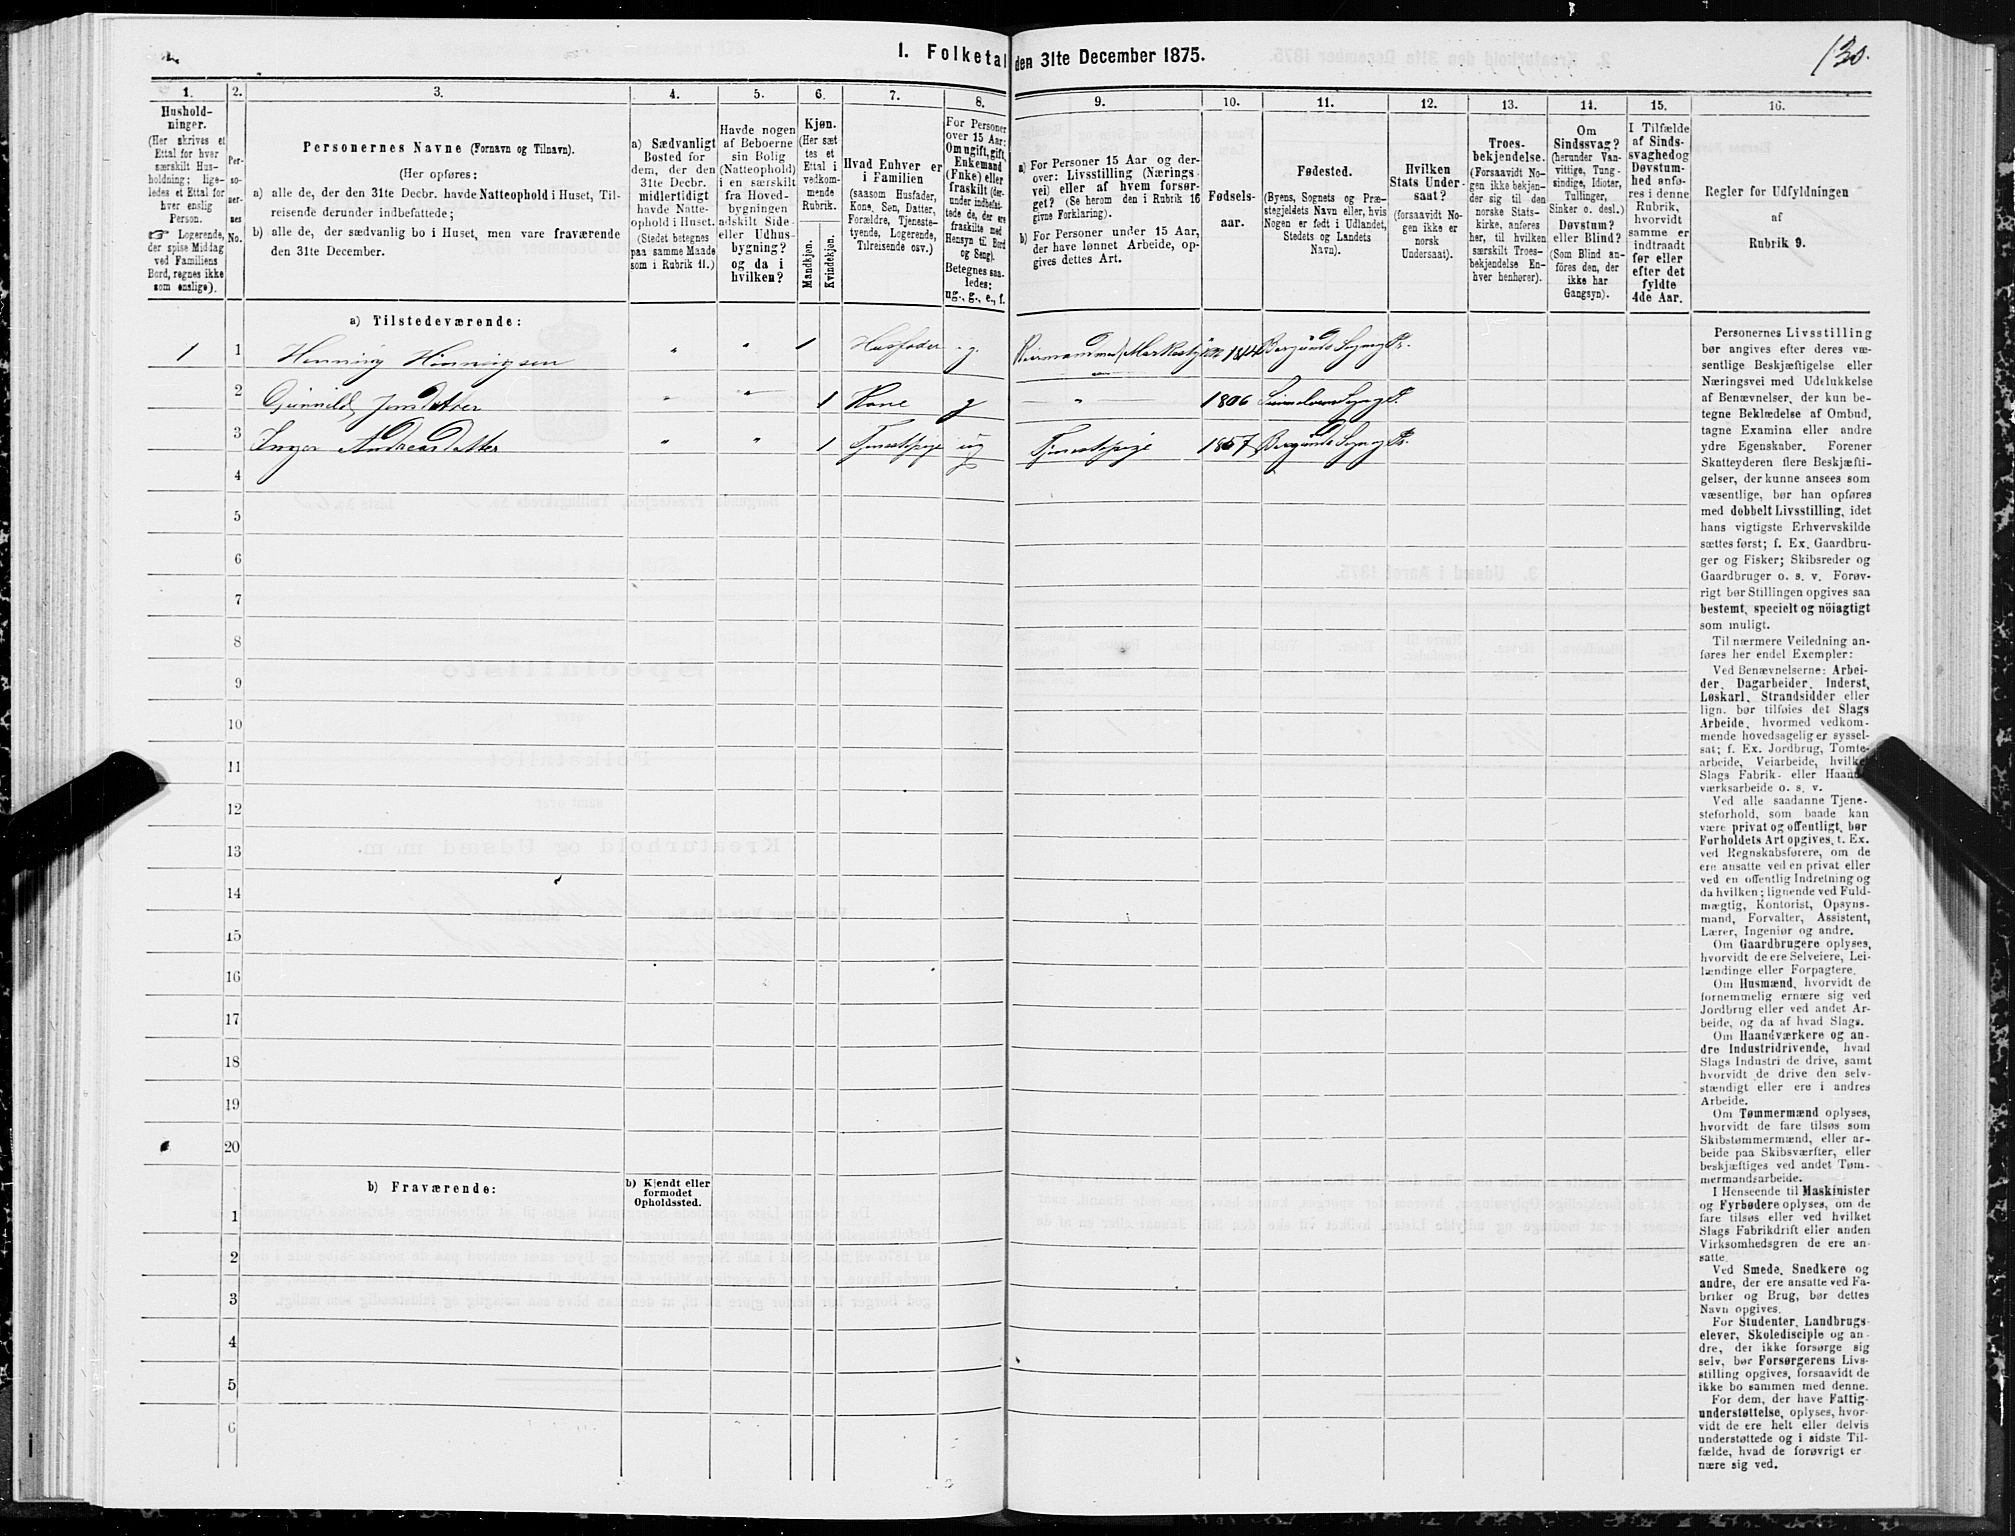 130.
1. Folketal den 31te December 1875.
1. 2. 3. 4. 5. 6. 7. 8. 9. 10. 11. 12. 13. 14. 15. 16.
Hushold-
ninger.
(Her skrives et
Ettal for hver
særskilt Hus-
holdning; lige-
ledes et Ettal for
hver enslig
Person.
☞ Logerende,
der spise Middag
ved Familiens
Bord, regnes ikke
som enslige).
Per-
so-
ner-
nes
No.
Personernes Navne (Fornavn og Tilnavn).
(Her opføres:
a) alle de, der den 31te Decbr. havde Natteophold i Huset, Til-
reisende derunder indbefattede;
b) alle de, der sædvanlig bo i Huset, men vare fraværende
den 31te December.
a) Sædvanligt
Bosted for
dem, der den
31te Decbr.
midlertidigt
havde Natte-
ophold i Huset.
(Stedet betegnes
paa samme Maade
som i Rubrik 11.)
Havde nogen
af Beboerne
sin Bolig
(Natteophold)
i en særskilt
fra Hoved-
bygningen
adskilt Side-
eller Udhus-
bygning?
og da i
hvilken?
Kjøn.
(Her sæt
tes et
Ettal i
vedkom-
mende
Rubrik.
Mandkjøn.
Kvindekjøn.
Hvad Enhver er
i Familien
(saasom Husfader,
Kone, Søn, Datter,
Forældre, Tjeneste-
tyende, Logerende,
Tilreisende osv.)
For Personer
over 15 Aar:
Om ugift, gift,
Enkemand
(Enke) eller
fraskilt (der-
under indbefat-
tede de, der ere
fraskilte med
Hensyn til Bord
og Seng).
Betegnes saa-
ledes:
ug., g., e., f.
a) For Personer 15 Aar og der-
over: Livsstilling (Nærings-
vei) eller af hvem forsør-
get? (Se herom den i Rubrik 16
givne Forklaring).
b) For Personer under 15 Aar,
der have lønnet Arbeide, op-
gives dettes Art.
Fødsels-
aar.
Fødested.
(Byens, Sognets og Præ-
stegjeldets Navn eller, hvis
Nogen er født i Udlandet,
Stedets og Landets
Navn).
Hvilken
Stats Under-
saat?
(forsaavidt No-
gen ikke er
norsk
Undersaat).
Troes-
bekjendelse.
(Forsaavidt No-
gen ikke bekjen-
der sig til den
norske Stats-
kirke, anføres
her, til hvilken
særskilt Troes-
bekjendelse En-
hver henhører).
Om
Sindssvag?
(herunder Van-
vittige, Tung-
sindige, Idioter,
Tullinger,
Sinker o. desl.)
Døvstum?
eller Blind?
(Som Blind an-
føres den, der
ikke har
Gangsyn).
I Tilfælde
af Sinds-
svaghed og
Døvstum-
hed anfø-
res i denne
Rubrik,
hvorvidt
samme er
indtraadt
før eller
efter det
fyldte
4de Aar.
Regler for Udfyldningen
af
Rubrik 9.
a) Tilstedeværende:
1 1 Henning Henningsen " " 1 Husfader g.
2 Gunnild Jensdatter " " 1 Kone g " 1806
3 Inger Andreasdatter " " 1 Tjenestpige ug Tjenestpige 1857 Bergunds Sogn og Pr.
4
5
6
7
8
9
10
11
12
13
14
15
16
17
18
19
20
b) Fraværende:
b) Kjendt eller
formodet
Opholdssted.
1
2
3
4
5
6
Personernes Livsstilling
bør angives efter deres væ-
sentlige Beskjæftigelse eller
Næringsvei med Udelukkelse
af Benævnelser, der kun be-
tegne Beklædelse af Ombud,
tagne Examina eller andre
ydre Egenskaber. Forener
Skatteyderen flere Beskjæfti-
gelser, der kunne ansees som
væsentlige, bør han opføres
med dobbelt Livsstilling, idet
hans vigtigste Erhvervskilde
sættes først; f. Ex. Gaardbru-
ger og Fisker; Skibsreder og
Gaardbruger o. s. v. Forøv-
rigt bør Stillingen opgives saa
bestemt, specielt og nöiagtigt
som muligt.
Til nærmere Veiledning an-
føres her endel Exempler:
Ved Benævnelserne: Arbei-
der, Dagarbeider, Inderst,
Løskarl, Strandsidder eller
lign. bør tilføies det Slags
Arbeide, hvormed vedkom-
mende hovedsagelig er syssel-
sat; f. Ex. Jordbrug, Tomte-
arbeide, Veiarbeide, hvilket
Slags Fabrik- eller Haand-
værksarbeide o. s. v.
Ved alle saadanne Tjene-
steforhold, som baade kan
være privat og offentligt, bør
Forholdets Art opgives, t. Ex.
ved Regnskabsførere, om de
ere ansatte ved en privat eller
ved en offentlig Indretning og
da hvilken; lignende ved Fuld-
mægtig, Kontorist, Opsyns-
mand, Forvalter, Assistent,
Lærer, Ingeniør og andre.
Om Gaardbrugere oplyses,
hvorvidt de ere Selveiere, Lei-
lændinge eller Forpagtere.
Om Husmænd, hvorvidt de
fornemmelig ernære sig ved
Jordbrug eller ved andet Ar-
beide, og da af hvad Slags.
Om Haandværkere og an-
dre Industridrivende, hvad
Slags Industri de drive, samt
hvorvidt de drive den selv-
stændigt eller ere i andres
Arbeide.
Om Tømmermænd oplyses,
hvorvidt de fare tilsøs som
Skibstømmermænd, eller ar-
beide paa Skibsværfter, eller
beskjæftiges ved andet Tøm-
mermandsarbeide.
I Henseende til Maskinister
og Fyrbødere oplyses, om de
fare tilsøs eller ved hvilket
Slags Fabrikdrift eller anden
Virksomhedsgren de ere an-
satte.
Ved Smede, Snedkere og
andre, der ere ansatte ved Fa-
briker og Brug, bør dettes
Navn opgives.
For Studenter, Landbrugs-
elever, Skoledisciple og an-
dre, der ikke forsørge sig
selv, bør Forsørgerens Livs-
stilling opgives, forsaavidt de
ikke bo sammen med denne.
For dem, der have Fattig-
understøttelse, oplyses, hvor-
vidt de ere helt eller delvis
understøttede og i sidste Til-
fælde, hvad de forøvrigt er-
nære sig ved.